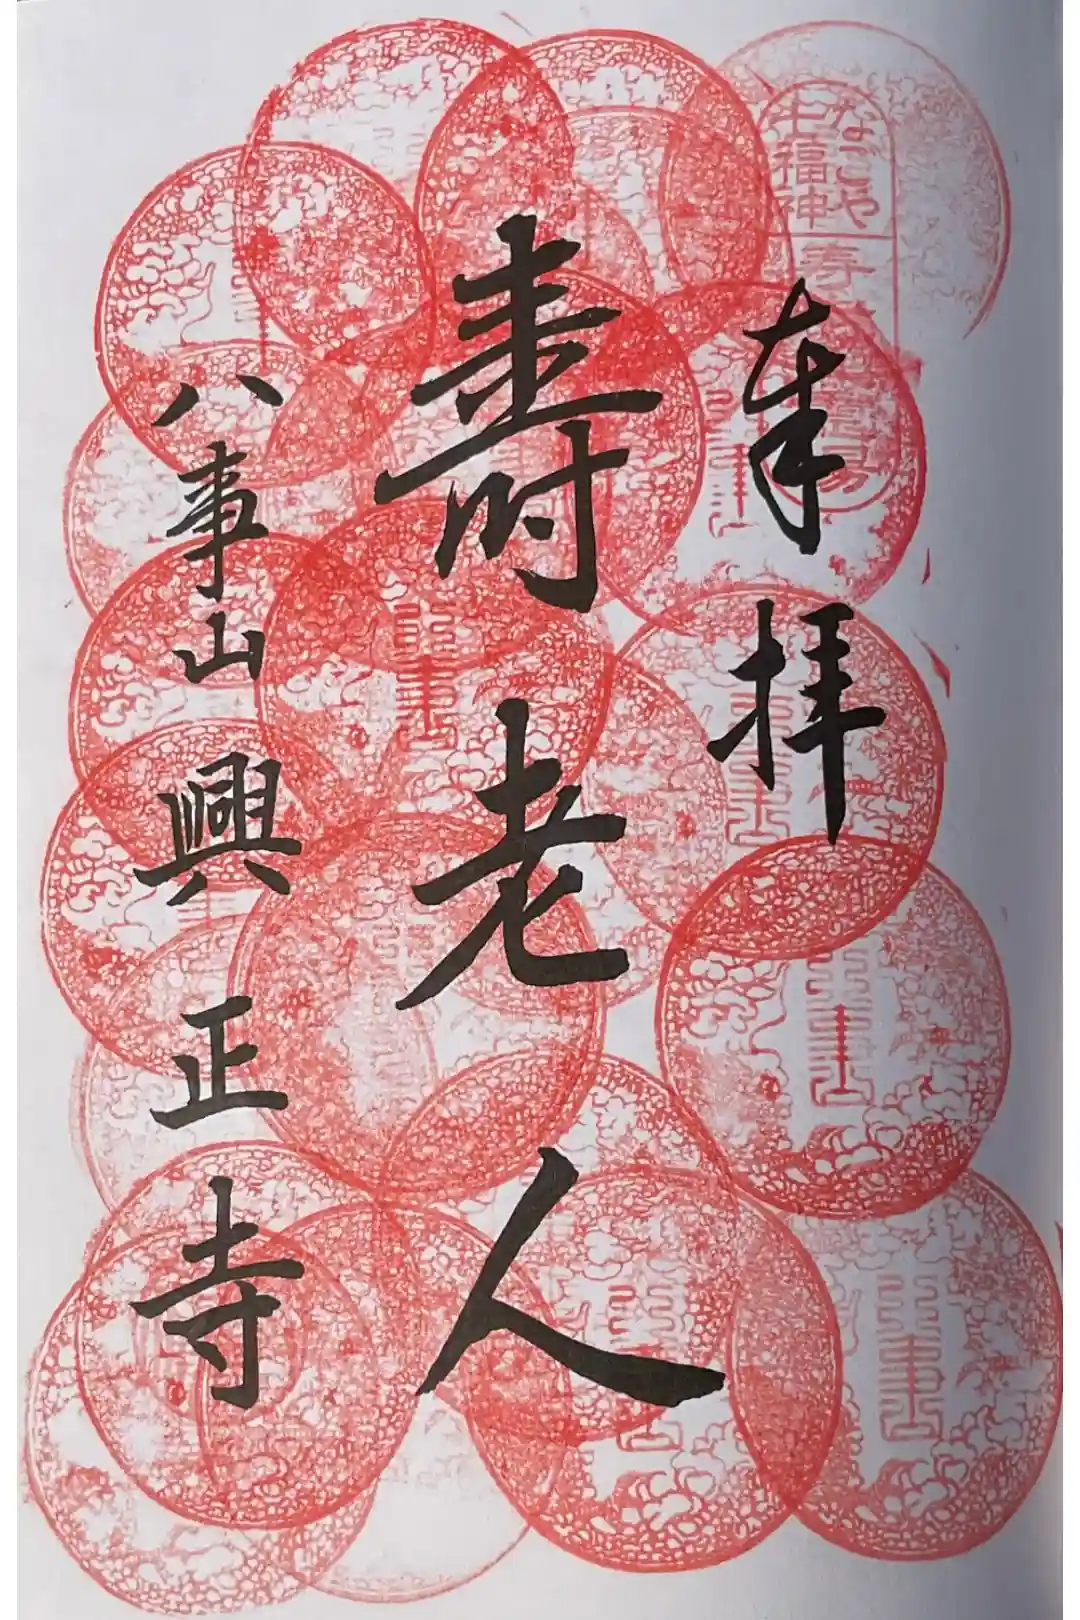 奉拝
なごや
七福神
寿老人
八事山
興正寺